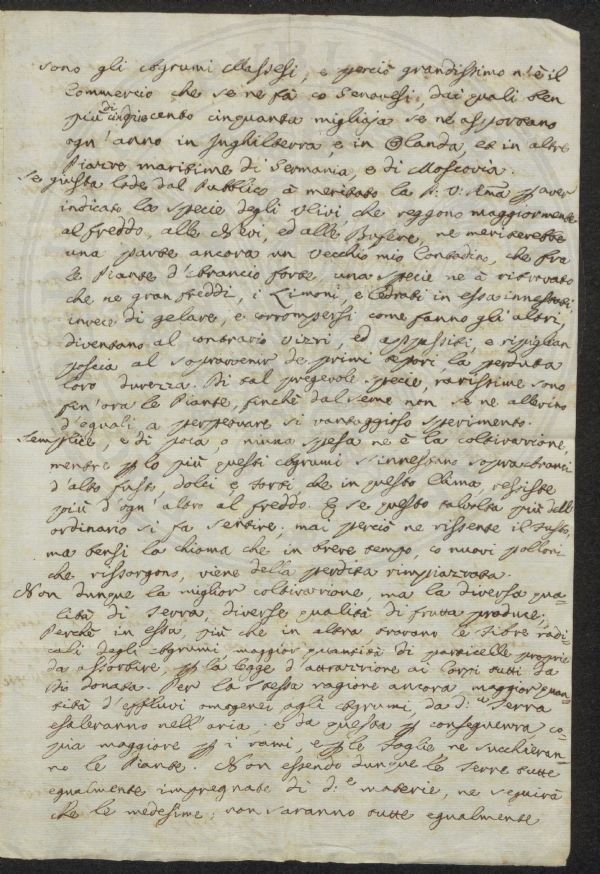 sono gli Agrumi Massesi, e perciò grandissimo n'è il
Commercio che se ne fà co Genovesi, dai quali ben
più di cinquecento cinquanta migliaja se ne asportano
ogn'anno in Inghilterra, e in Olanda, et in altre
Piazze maritime di Germania, e di Moscovia.
Se giusta lode dal Pubblico à meritato la P: V: Ama p aver
indicato la specie degli Ulivi che reggono maggiormente
al freddo, alle Nevi, ed alle Bufere, ne meriterebbe
una parte ancora un vecchio mio Contadin, che fra
le Piante d'Arancio forte, una specie ne à ritrovato
che ne gran freddi, i Limoni, e Cedrati in essa innestati,
invece di gelare, e corrompersi come fanno gli altri,
diventano al contrario vizzi, ed appassiti, e ripiglian
poscia al sopravvenir de primi tepori, la perduta
loro durezza. Di tal pregevole specie, rarissime sono
fin'ora le Piante, finchè dal seme non se ne allevino
d'eguali, a perpetuare si vantaggioso sperimento.
Semplice, e di poca, o niuna spesa ne è la coltivazione,
mentre p lo più questi Agrumi s'innestano sopra Aranci
d'alto fusto, dolci e forti che in questo Clima resiste
più d'ogn'altro al freddo. E se questo talvolta più dell'
ordinario si fa sentire, mai perciò ne rissente il fusto,
ma bensi la chioma che in breve tempo, co nuovi polloni
che rissorgono, viene della perdita rimpiazzata.
Non dunque la miglior coltivazione, ma la diversa qua-
lità di Terra, diverse qualità di frutta produce,
Perchè in essa, più che in altra trovano le fibre radi-
cali degli Agrumi, maggior quantità di particelle proprie
da assorbire, p la legge d'attrazione ai Corpi tutti da
Dio donata. Per la stessa ragione ancora, maggior quan-
tità d'effluvi omogenei agli Agrumi, da d.a Terra
esaleranno nell'aria, e da questa p conseguenza, co-
pia maggiore p i rami, e p le foglie ne succhieran-
no le Piante. Non essendo dunque le Terre tutte
egualmente impregnate di d.e materie, ne seguirà
che le medesime, non saranno tutte egualmente